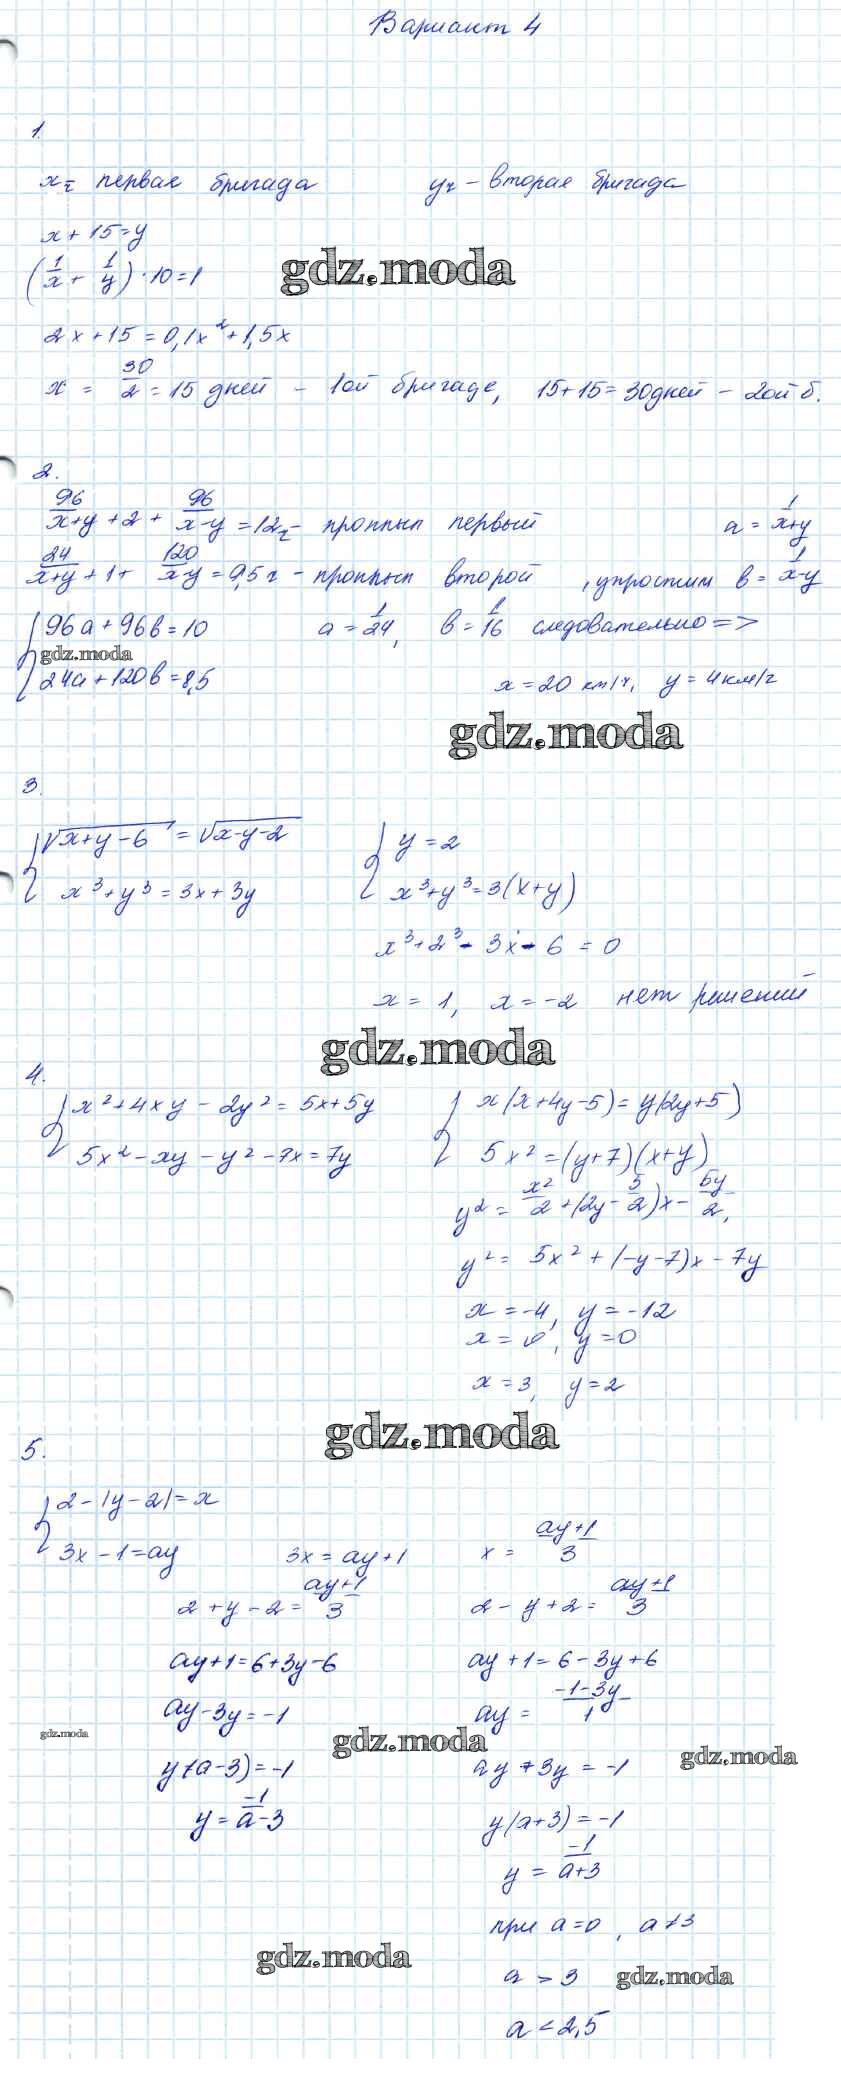 Вариант 4
1.
x г первая бригада yг - вторая бригада
x + 15 = y
(1/x + 1/y) · 10 = 1
gdz.moda
2x + 15 = 0,1x² + 1,5x
x = 30/2 = 15 дней - 1ой бригаде, 15 + 15 = 30 дней - 2ой б.
2.
96/x+y + 2 + 96/x-y = 12 г - проплыл первый a = 1/x+y
24/x+y + 1 + 120/x-y = 9,5 г - проплыл второй , упростим b = 1/x-y
{ 96a + 96b = 10 a = 1/24, b = 1/16 следовательно =>
gdz.moda
24a + 120b = 8,5 x = 20 км/ч, y = 4 км/г
gdz.moda
3.
{ √x+y-6 = √x-y-2 { y = 2
x³ + y³ = 3x + 3y x³ + y³ = 3(x+y)
x³ + 2³ - 3x - 6 = 0
x = 1, x = -2 нет решений
gdz.moda
4.
{ x² + 4xy - 2y² = 5x + 5y { x(x+4y-5) = y(2y+5)
5x² - xy - y² - 7x = 7y 5x² = (y+7)(x+y)
y² = x²/2 + (2y - 5/2)x - 5y/2,
y² = 5x² + (-y-7)x - 7y
x = -4, y = -12
x = 0, y = 0
x = 3, y = 2
gdz.moda
5.
{ 2 - |y-2| = x
3x - 1 = ay 3x = ay + 1 x = ay+1/3
2 + y - 2 = ay+1/3 2 - y + 2 = ay+1/3
ay + 1 = 6 + 3y - 6 ay + 1 = 6 - 3y + 6
ay - 3y = -1 ay = -1-3y/1
gdz.moda gdz.moda gdz.moda
y(a-3) = -1 ay + 3y = -1
y = -1/a-3 y(a+3) = -1
y = -1/a+3
при a = 0, a ≠ 3
gdz.moda
a > 3 gdz.moda
a < 2,5